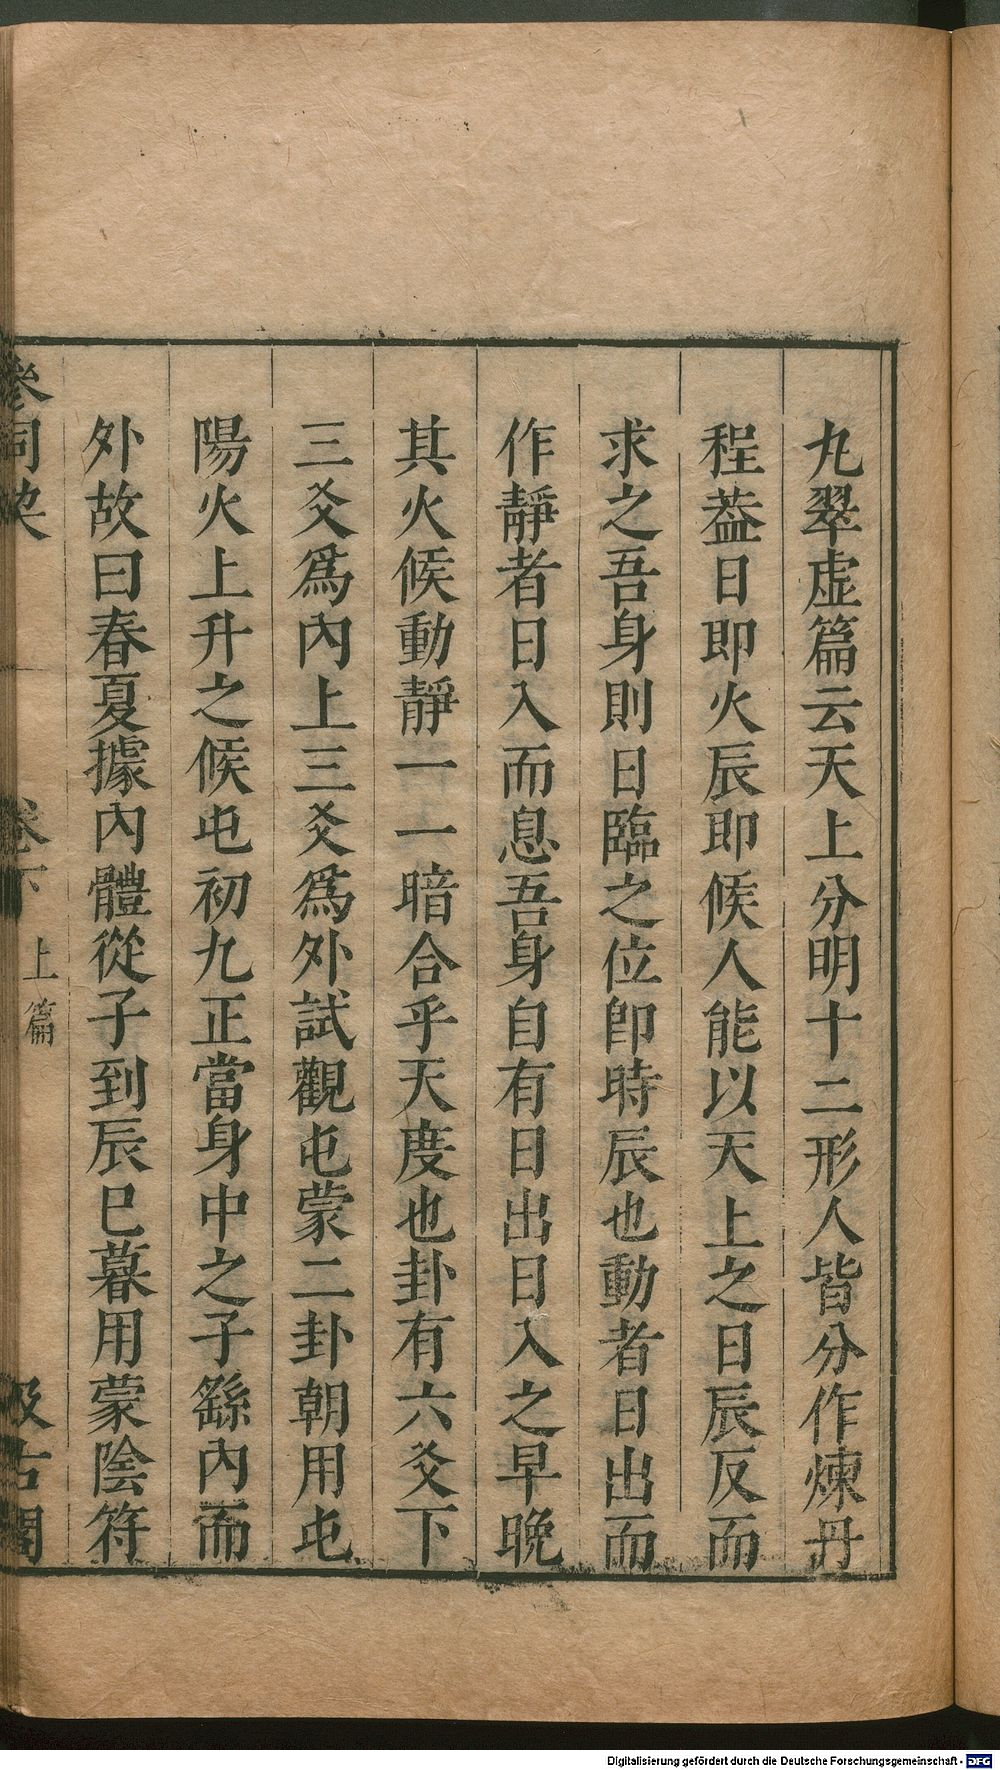 九翠虛篇云天上分明十二形人皆分作煉丹
程葢日即火辰即候人能以天上之日辰反而
求之吾身則日臨之位卽時辰也動者日出而
作靜者日入而息吾身自有日出日入之早晚
其火候動靜一一暗合乎天度也卦有六爻下
三爻爲內上三爻爲外試觀屯蒙二卦朝用屯
陽火上升之候屯初九正當身中之子繇內而
外故曰春夏據內體從子到辰巳暮用蒙陰符
參同契 卷下 上篇 汲古閣
Digitalisierung gefördert durch die Deutsche Forschungsgemeinschaft - DFG